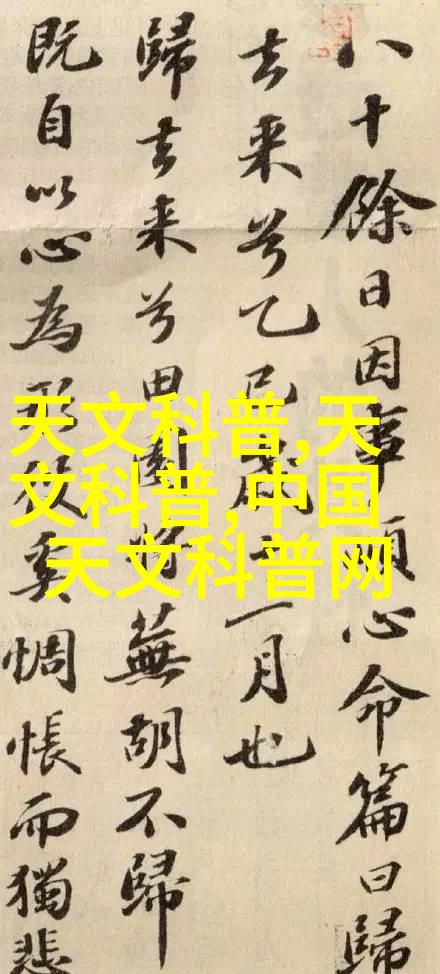 八十餘日因事順心命篇曰歸
去来兮乙巳歲十一月也
歸去来兮田園将蕪胡不歸
既自以心為形役奚惆悵而獨悲
天文科普,天
文科普,中国
天文科普网